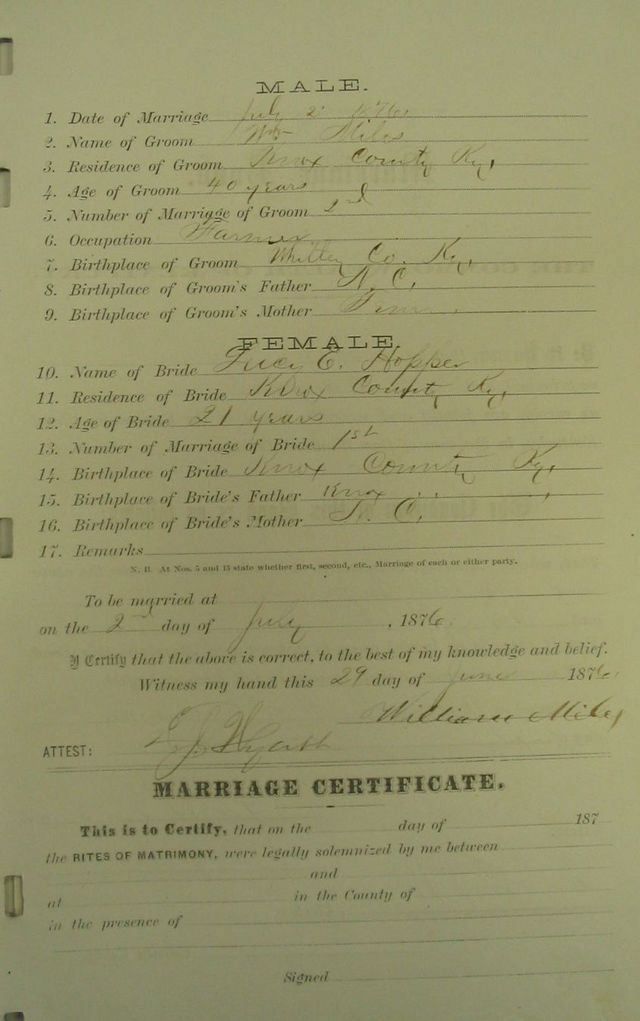 MALE.
1. Date of Marriage July 2 1876
2. Name of Groom Wm Miles
3. Residence of Groom Knox County Ky,
4. Age of Groom 40 years
5. Number of Marriage of Groom 2nd
6. Occupation Farmer
7. Birthplace of Groom Whitley Co. Ky,
8. Birthplace of Groom's Father N. C.
9. Birthplace of Groom's Mother
FEMALE.
10. Name of Bride Lucy E. Hopper
11. Residence of Bride Knox County Ky,
12. Age of Bride 21 years
13. Number of Marriage of Bride 1st
14. Birthplace of Bride Knox County Ky,
15. Birthplace of Bride's Father Knox " "
16. Birthplace of Bride's Mother N. C.
17. Remarks
N. B. At Nos. 5 and 13 state whether first, second, etc., Marriage of each or either party.
To be married at
on the 2nd day of July, 1876.
I Certify that the above is correct, to the best of my knowledge and belief.
Witness my hand this 29 day of June 1876
William Miles
ATTEST: Wyatt
MARRIAGE CERTIFICATE.
This is to Certify, that on the day of 187
the RITES OF MATRIMONY, were legally solemnized by me between
and
at in the County of
in the presence of
Signed